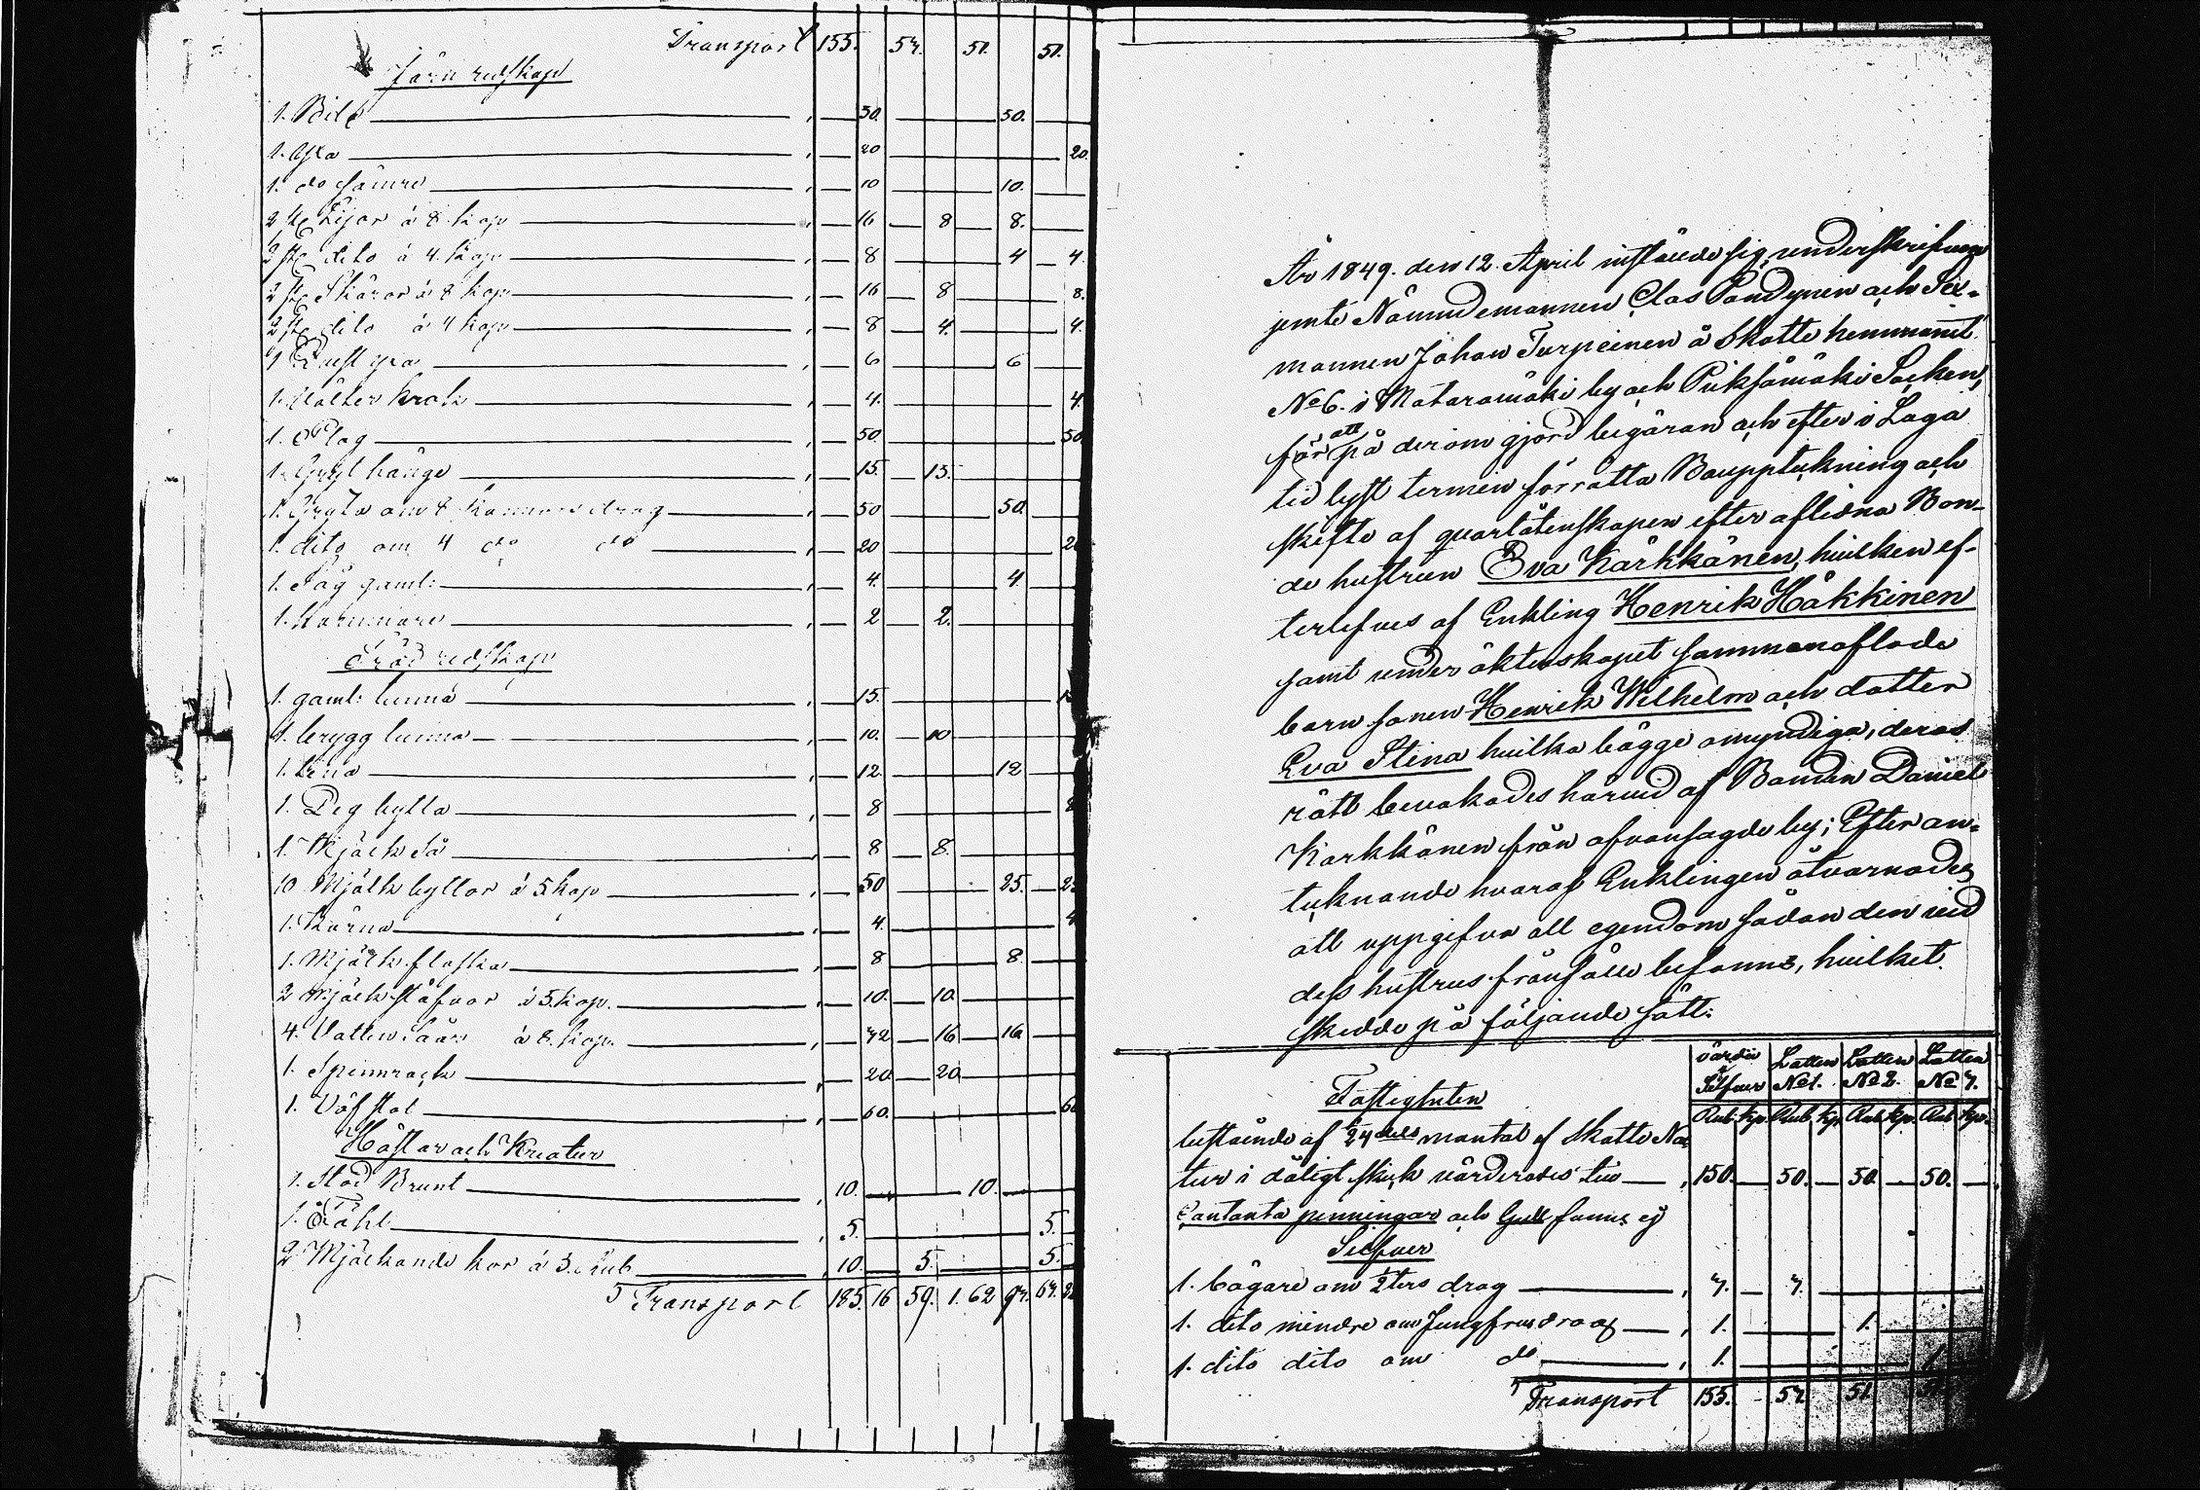 Transport 155. 53. 51. 51.
Järn redskap
1. Bila , 50. 50.
1. Yxa , 20 20.
1. do sämre , 10 10.
2 st Lijor à 8 kop , 16 8 8.
2 st dito à 4. kop , 8 4 4.
2 st Skäror à 8 kop , 16 8 8.
2 st dito à 4 kop , 8 4. 4.
1 yxa , 6 6
1. krok , 4. 4.
1. Plog , 50. 50
1. Gryt hänge , 15. 15.
1. Gryta om 8 kannors drag , 50 50.
1. dito om 4 do do , 20 20
1. Såg gaml: , 4. 4.
1. Hammare , 2 2.
Träd redskap
1. gaml: tunna , 15. 15
1. brygg tunna , 10. 10
1. tina , 12. 12
1. Deg bytta , 8 8
1. Mjölk Så , 8 8.
10 Mjölk byttor à 5 kop , 50 25. 25
1. Kärna , 4. 4
1. Mjölk flaska , 8 8.
2 Mjölk stäfvor à 5. kop. , 10. 10.
4. Vatten Såar à 8. kop. , 32 16 16
1. Spinnrock , 20 20
1. Väf stol , 60. 60
Hästar och Kreatur
1. Stod Brunt , 10. 10.
1. Fåhl , 5. 5.
2 Mjölkande kor à 5. Rub , 10. 5. 5.
Transport 185. 16 59. 1. 62 93. 63.
År 1849. den 12. April instälde sig underskrifven
jemte Nämndemannen Clas Pöndynen och Sex-
mannen Johan Turpeinen å Skatte hemmanet
No 6. i Mataramäki by och Pieksämäki Socken,
för att på derom gjord begäran och efter i Laga
tid lyst termin förrätta Bouppteckning och
skifte af qvarlåtenskapen efter aflidna Bon-
de hustrun Eva Kärkkänen, hvilken ef-
terlefves af Enkling Henrik Häkkinen
samt under äktenskapet sammanaflade
barn sonen Henrik Wilhelm och dotter
Eva Stina hvilka bägge omyndiga, deras
rätt bevakades härvid af Bonden Daniel
Karkkänen från ofvansagde by; Efter an-
tecknande hvaraf Enklingen åtvarnades
att uppgifva all egendom sådan den vid
dess hustrus frånfälle befanns, hvilket
skedde på följande sätt:
Värdie Silfver Lotten No 1. Lotten No 2. Lotten No 3.
Fastigheten Rub kp. Rub kp. Rub kp. Rub kp.
bestående af 1/24 dels mantal af Skatte Na
tur i dåligt skick värderades till , 150. 50. 50. 50.
Contanta penningar och Gull fanns ej
Silfver
1. bägare om 1/2 ters drag , 3. 3.
1. dito mindre om Jungfrus drag , 1. 1.
1. dito dito om do , 1. 1.
Transport 155. 53. 51. 51